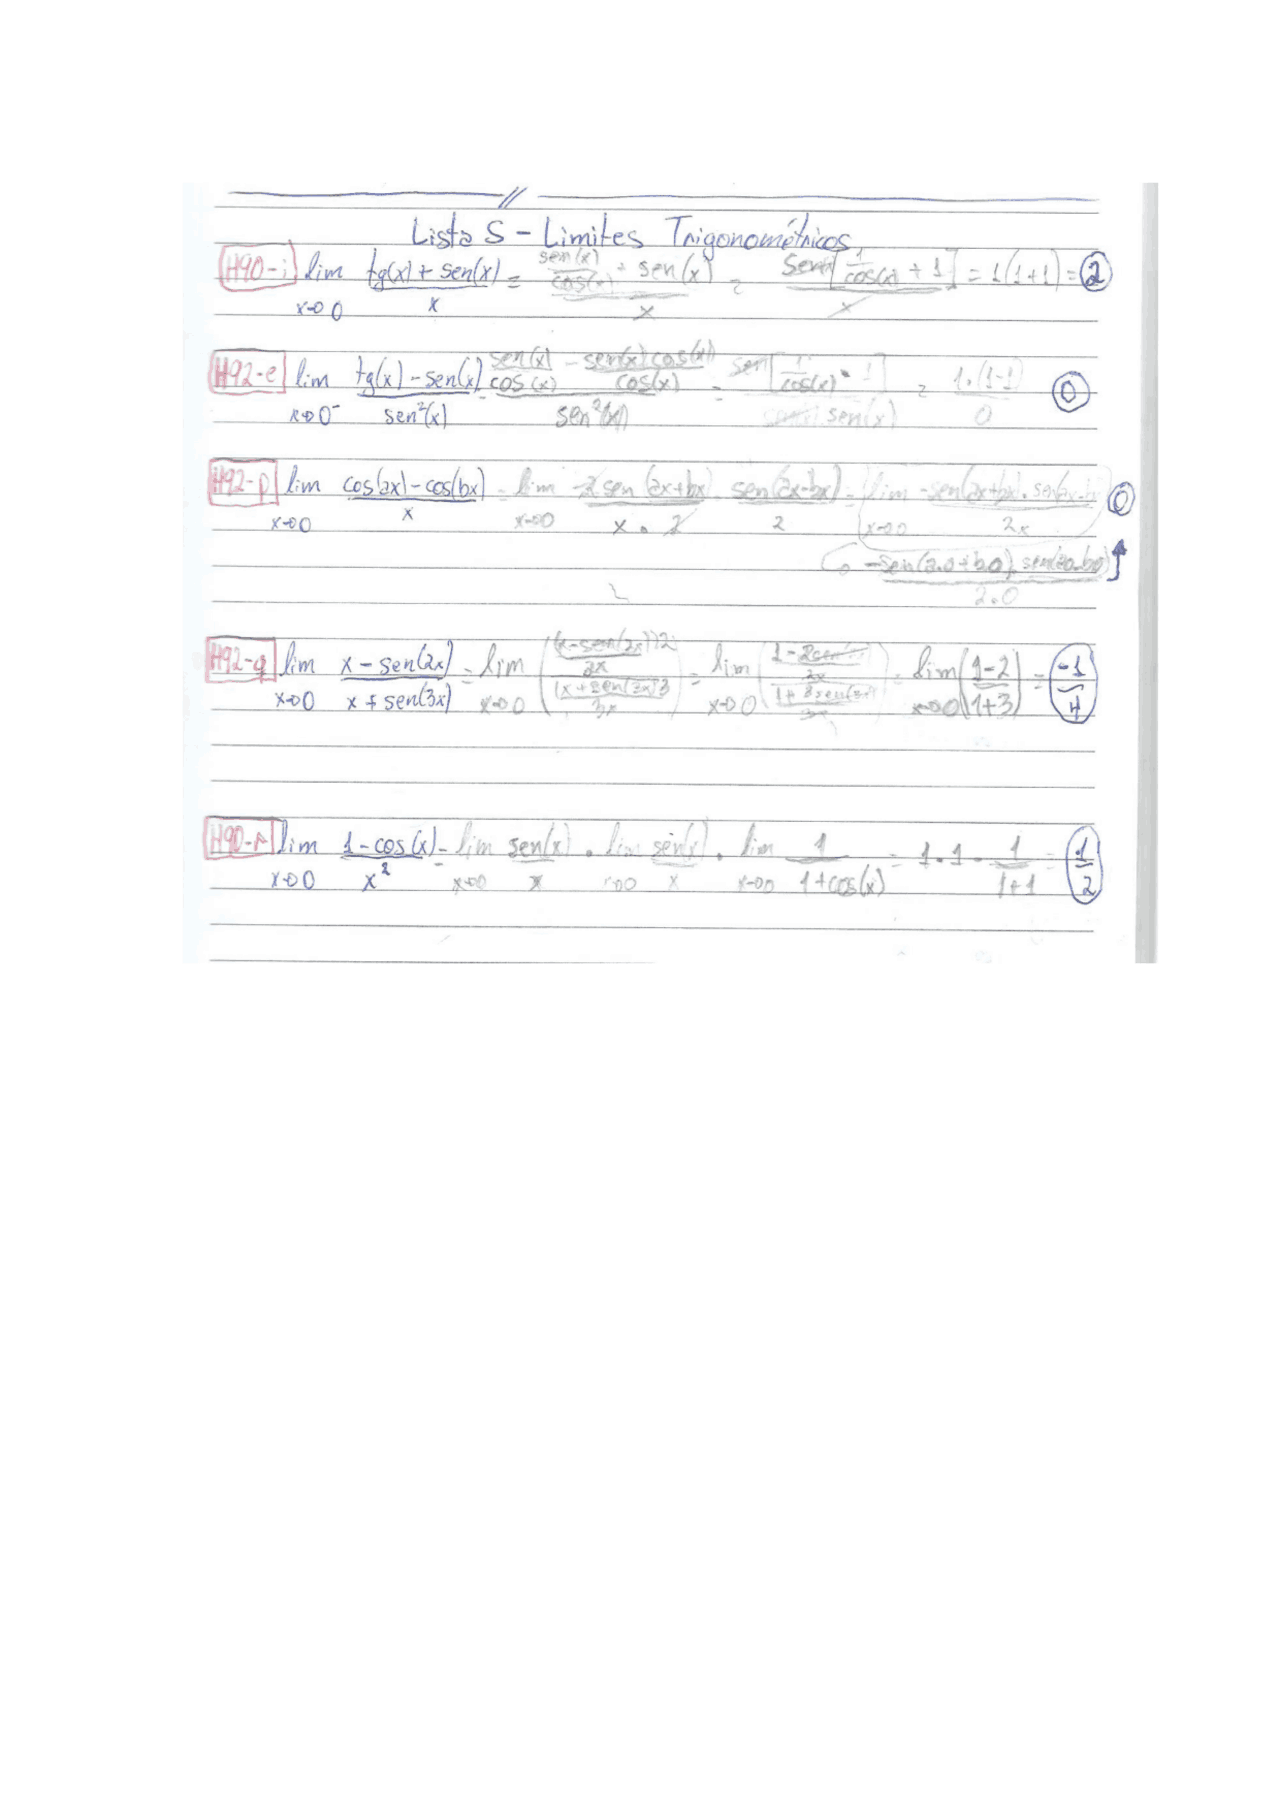 Lista 5 - Limites Trigonométricos
H90-i lim x→0 (tg(x) + sen(x))/x = (sen(x)/cos(x) + sen(x))/x = sen(x)[1/cos(x) + 1]/x = 1(1+1) = 2
H92-e lim x→0⁻ (tg(x) - sen(x))/sen²(x) = (sen(x)/cos(x) - sen(x)cos(x)/cos(x))/sen²(x) = sen[1/cos(x) - 1]/sen(x) sen(x) = 1.(1-1)/0 0
H92-p lim x→0 (cos(ax) - cos(bx))/x = lim x→0 -2 sen(ax+bx)/x.2 sen(ax-bx)/2 = lim x→0 -sen(ax+bx).sen(ax-b)/2x 0
-sen(a.0+b.0).sen(a0-b0)/2.0
H92-q lim x→0 (x - sen(2x))/(x + sen(3x)) = lim x→0 (((x-sen(2x))2/2x)/((x+sen(3x))3/3x)) = lim x→0 ((1-2sen/2x)/(1+3sen(3x)/3x)) = lim x→0 ((1-2)/(1+3)) = -1/4
H90-r lim x→0 (1-cos(x))/x² = lim x→0 sen(x)/x . lim x→0 sen(x)/x . lim x→0 1/(1+cos(x)) = 1.1.1/(1+1) = 1/2